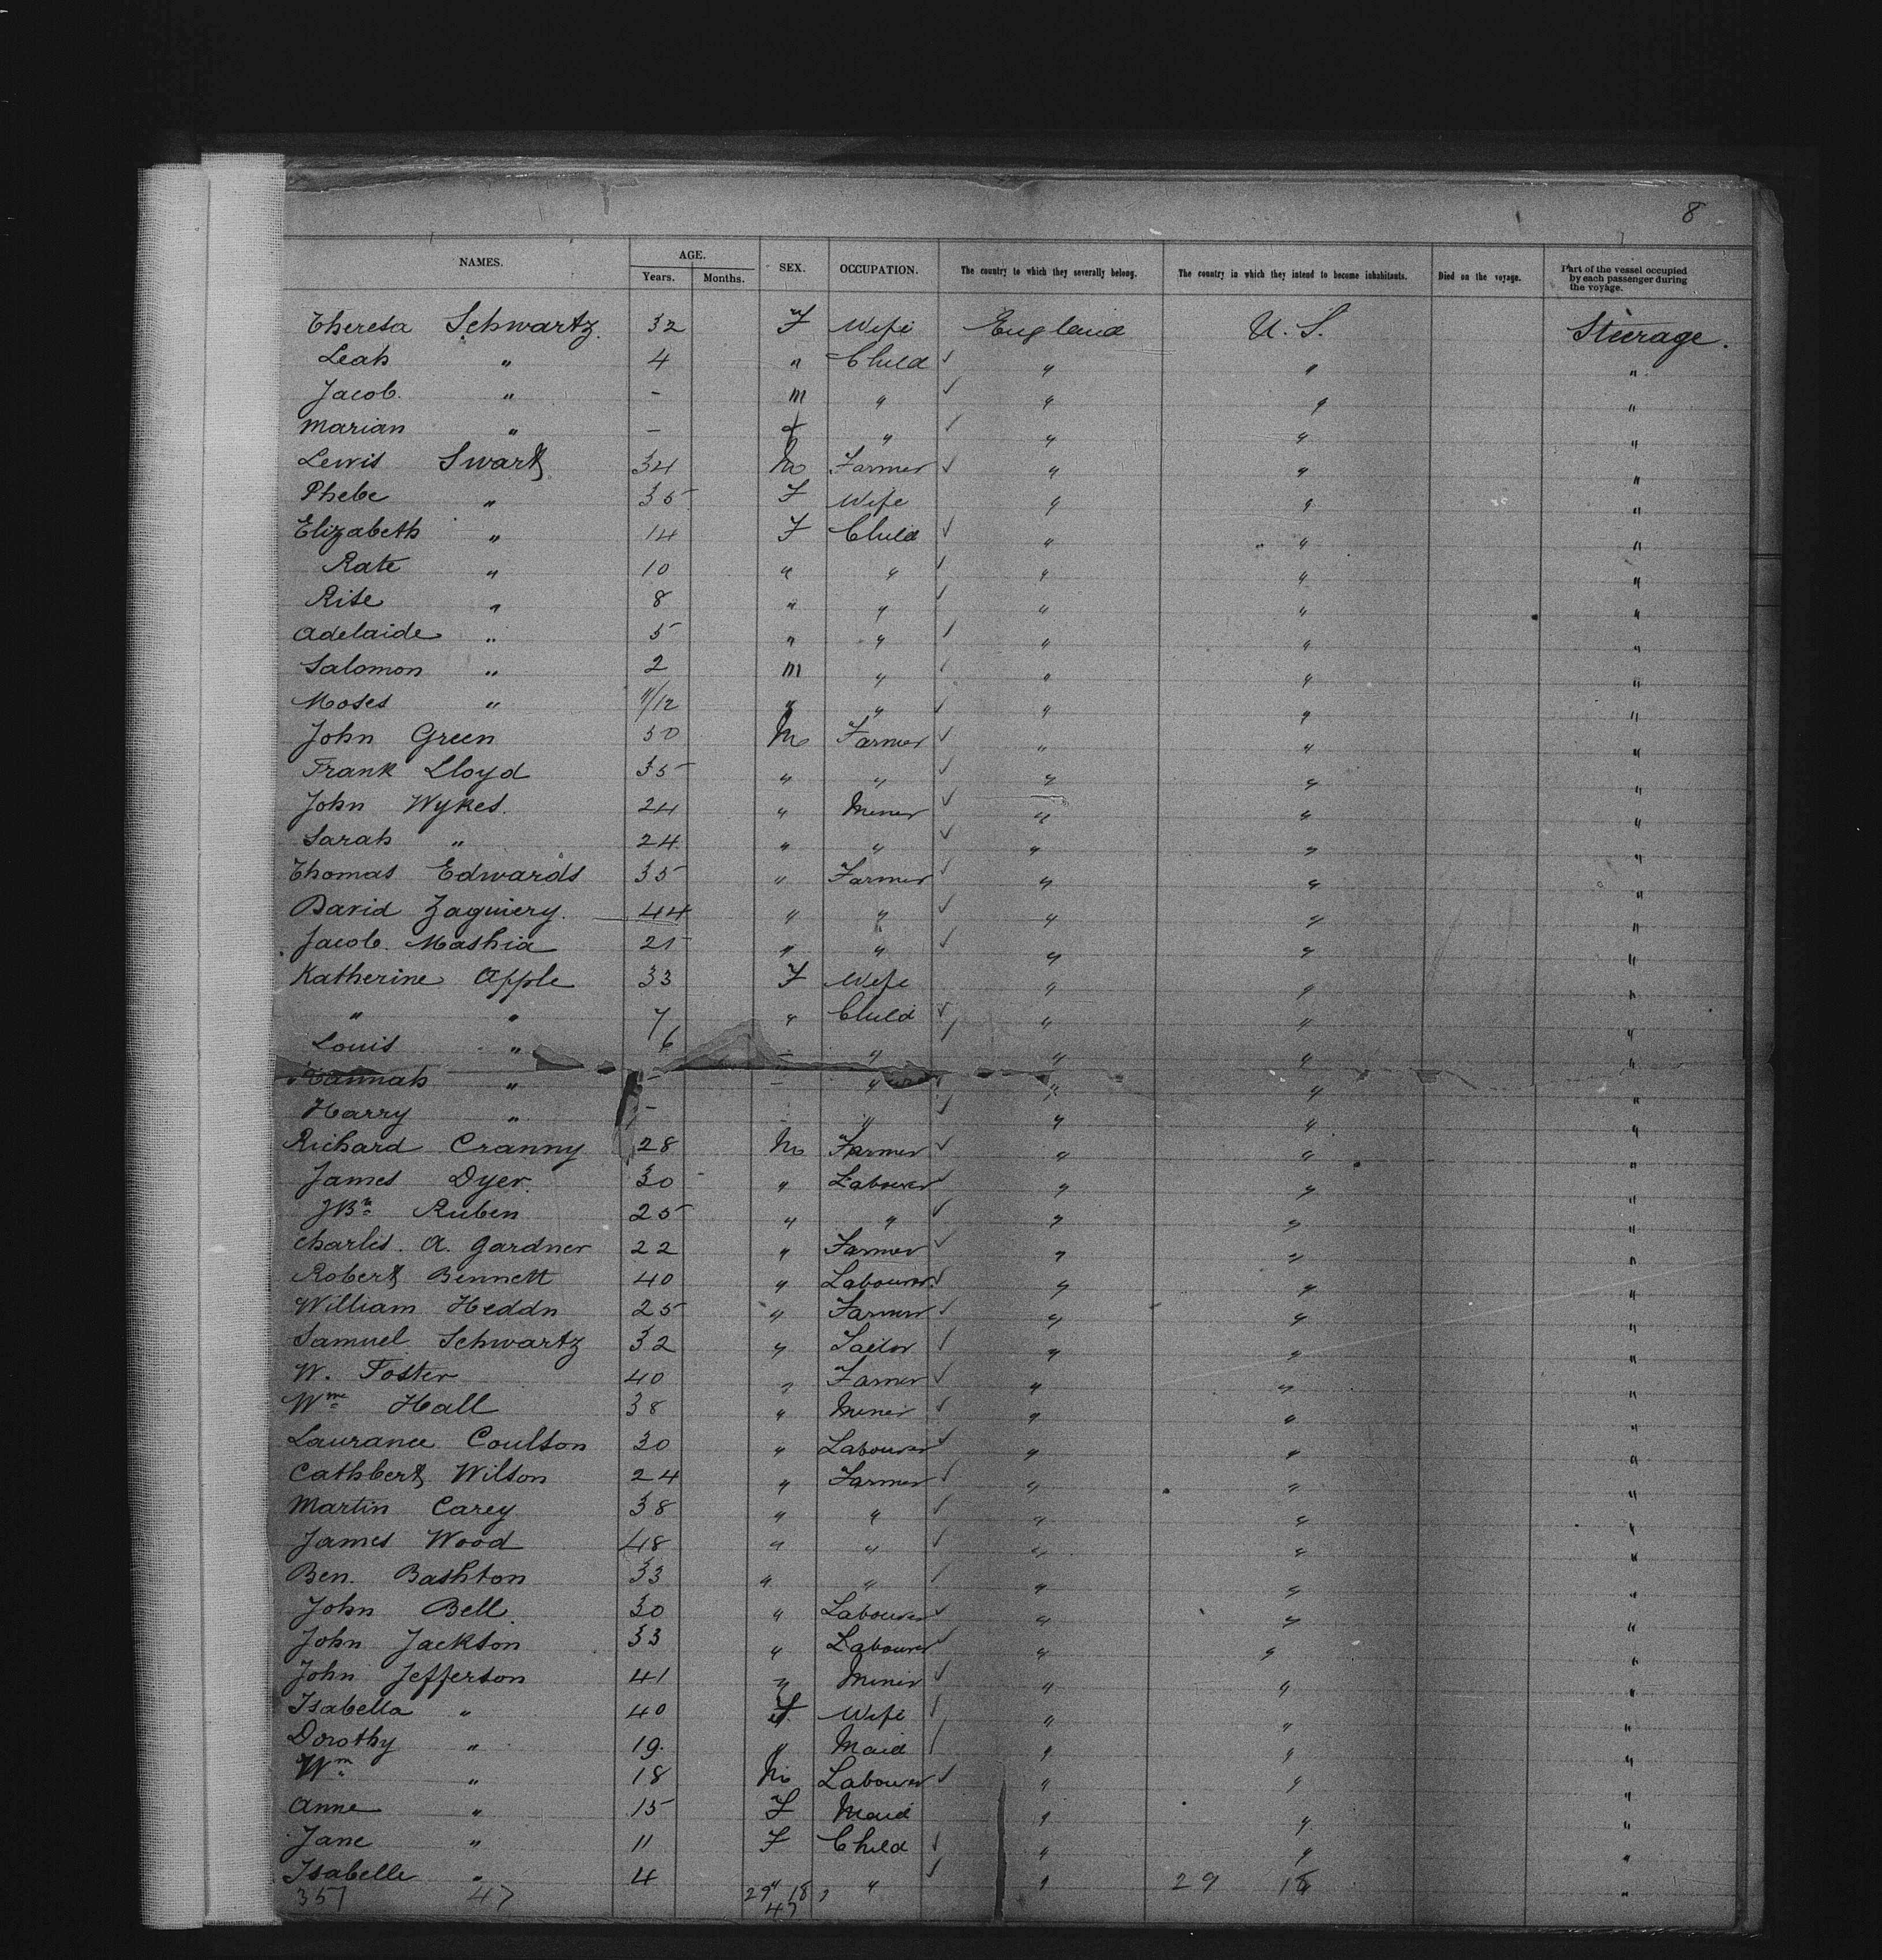 8
NAMES. AGE. SEX. OCCUPATION. The country to which they severally belong. The country in which they intend to become inhabitants. Died on the voyage. Part of the vessel occupied by each passenger during the voyage.
Years. Months.
Theresa Schwartz 32 F Wife England U.S. Steerage.
Leah " 4 " Child ✓ " " "
Jacob. " - m " ✓ " " "
Marian " - f " ✓ " " "
Lewis Swartz 34 M Farmer ✓ " " "
Phebe " 35 F Wife " " "
Elizabeth " 14 F Child ✓ " " "
Kate " 10 " " ✓ " " "
Rise " 8 " " ✓ " " "
Adelaide " 5 " " ✓ " " "
Salomon " 2 m " ✓ " " "
Moses " 11/12 " " ✓ " " "
John Green 50 M Farmer ✓ " " "
Frank Lloyd 35 " " ✓ " " "
John Wykes. 24 " Miner ✓ " " "
Sarah " 24 " " ✓ " " "
Thomas Edwards 35 " Farmer ✓ " " "
David Zaguiery. 44 " " ✓ " " "
Jacob. Mashia 21 " " ✓ " " "
Katherine Apple 33 F Wife " " "
" " 7 " Child ✓ " " "
Louis " 6 - " ✓ " " "
Hannah " - - " ✓ " " "
Harry " - " ✓ " " "
Richard Cranny 28 M Farmer ✓ " " "
James Dyer. 30 " Labourer ✓ " " "
Ruben 25 " " ✓ " " "
Charles. A. Gardner 22 " Farmer ✓ " " "
Robert Bennett 40 " Labourer ✓ " " "
William Heddn 25 " Farmer ✓ " " "
Samuel Schwartz 32 " Tailor ✓ " " "
W. Foster 40 " Farmer ✓ " " "
Wm Hall 38 " Miner ✓ " " "
Laurance Coulson 30 " Labourer ✓ " " "
Cathbert Wilson 24 " Farmer ✓ " " "
Martin Carey 38 " " ✓ " " "
James Wood 48 " " ✓ " " "
Ben. Bashton 33 " " ✓ " " "
John Bell. 30 " Labourer ✓ " " "
John Jackson 33 " Labourer ✓ " " "
John Jefferson 41 " Miner ✓ " " "
Isabella " 40 F Wife ✓ " " "
Dorothy " 19. " Maid ✓ " " "
Wm " 18 M Labourer ✓ " " "
Anne " 15 F Maid " " "
Jane " 11 F Child ✓ " " "
Isabelle " 4 " " ✓ " " "
357 47 29 18 29 18
47